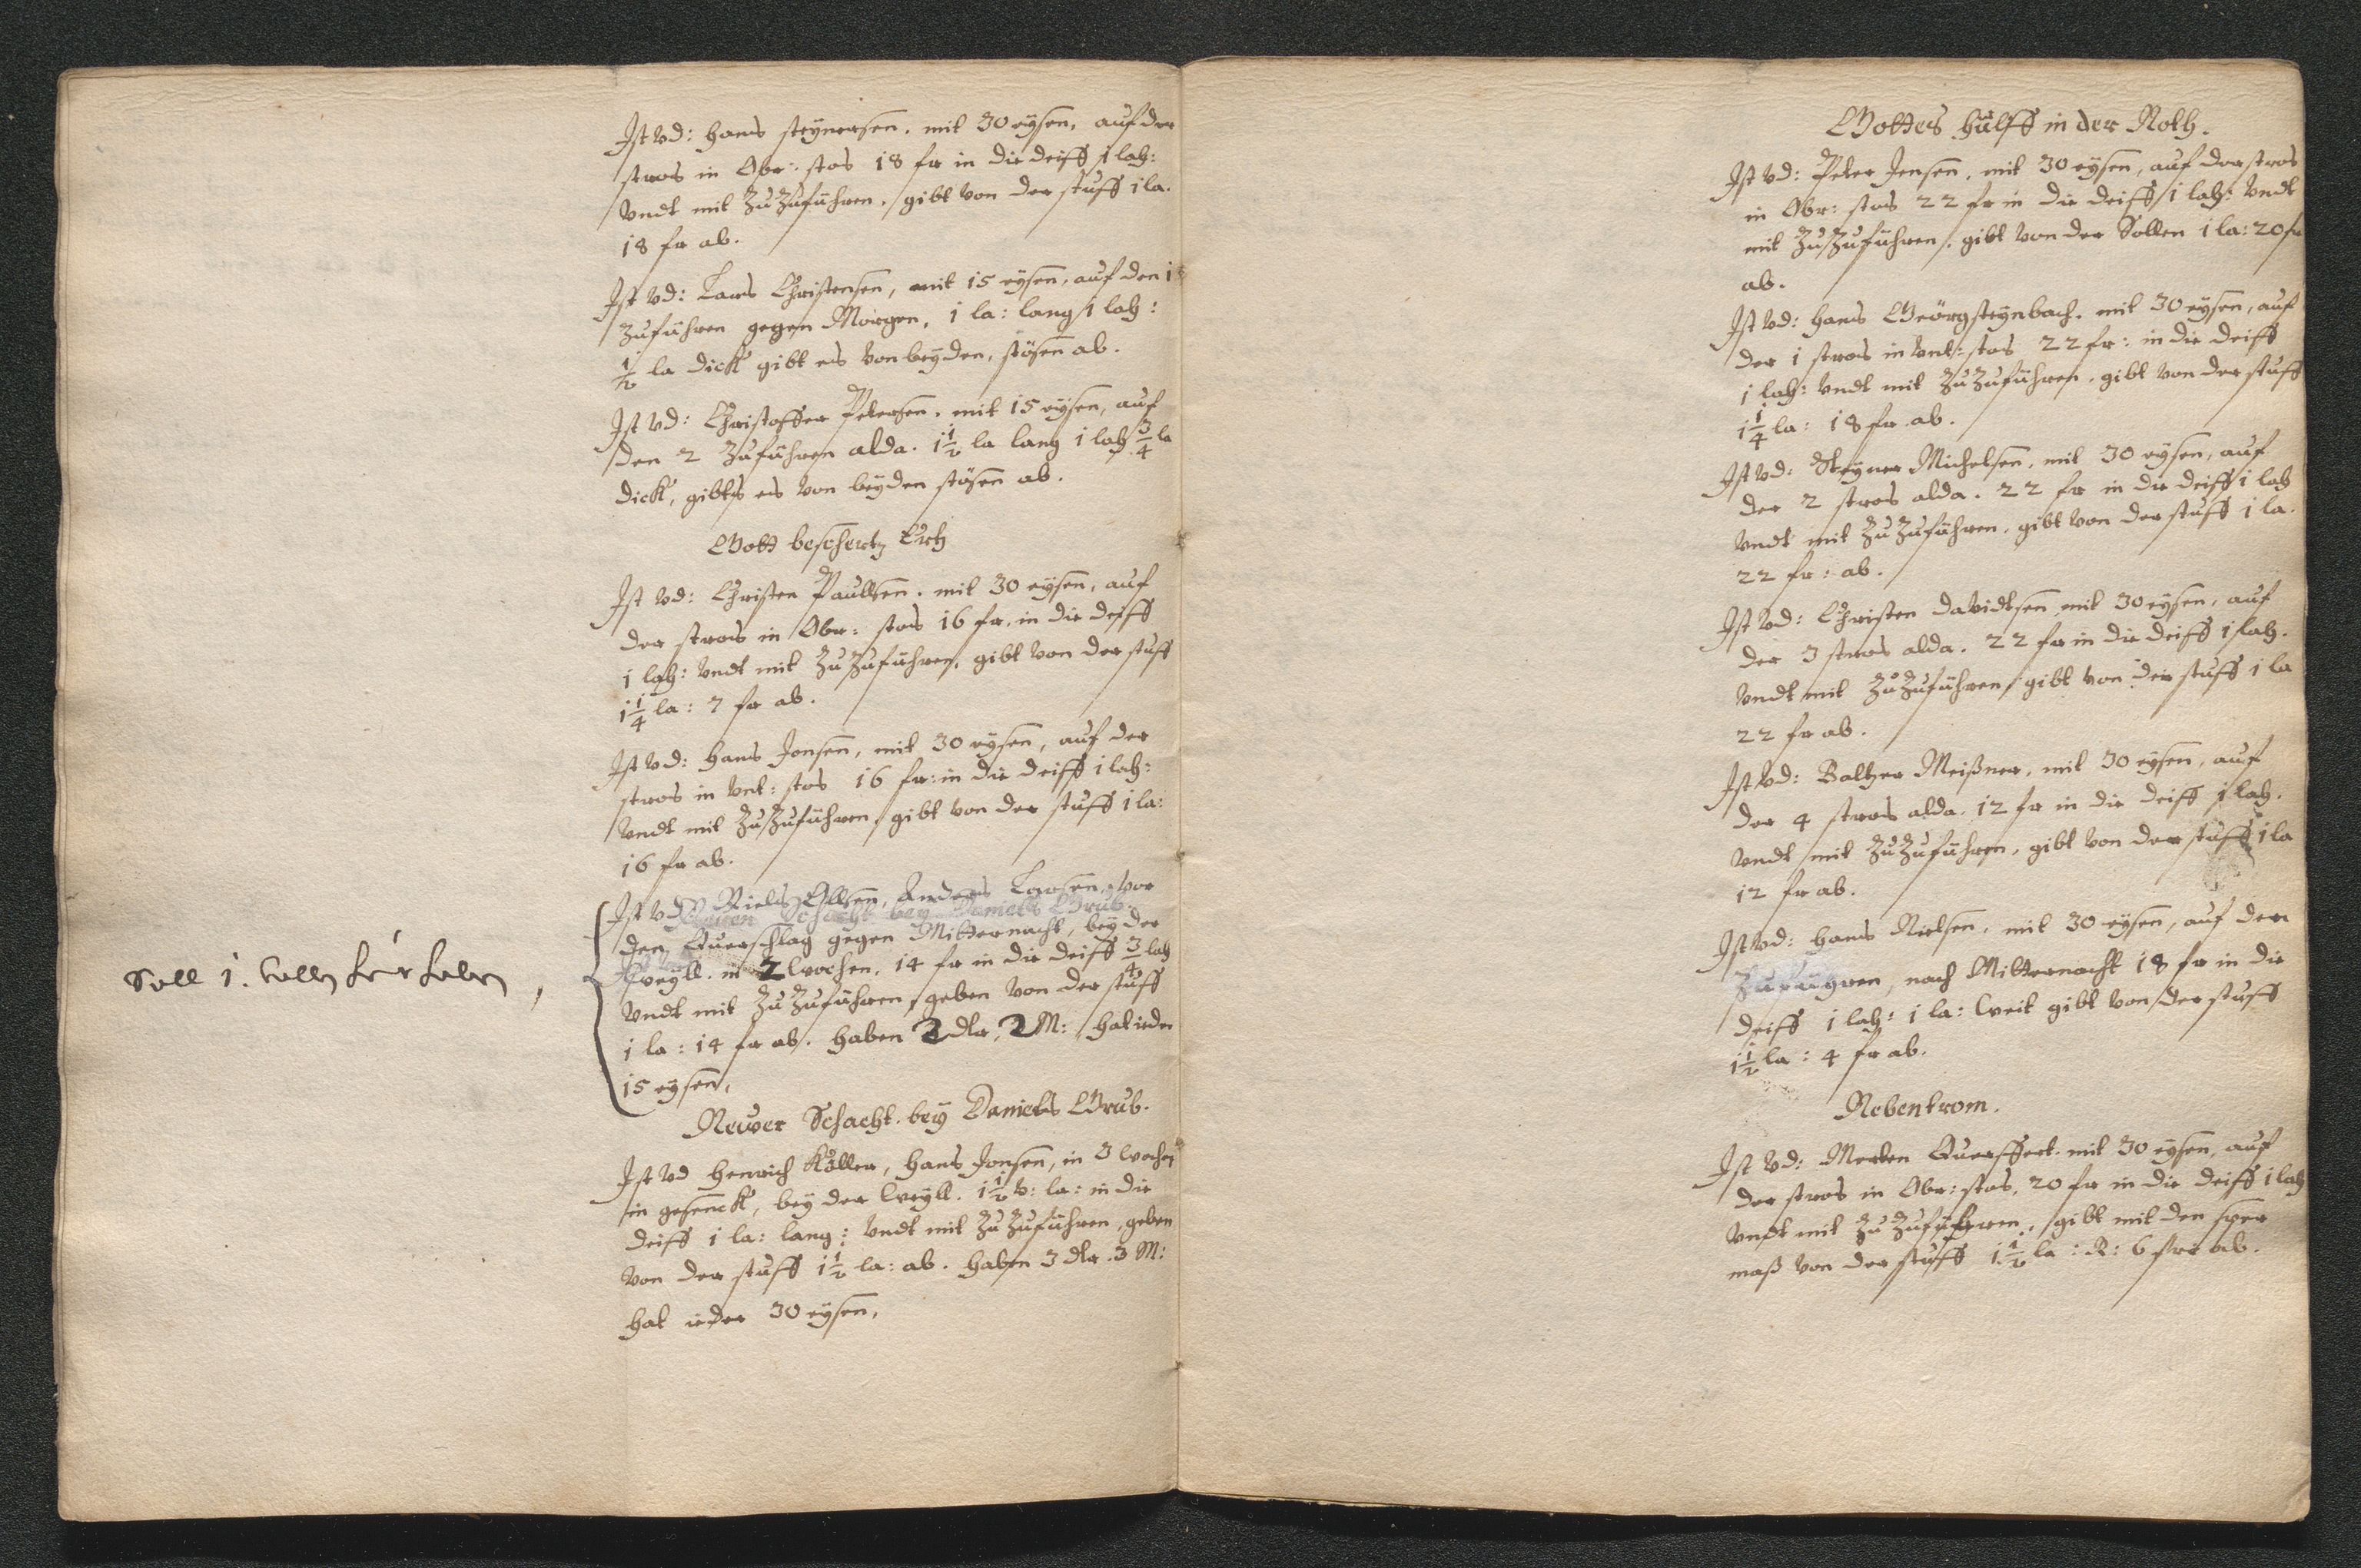 Ist vd: Hans steynersen. mit 30 eysen, auf der
stros in Obr: stos 18 fr in die deiff 1 lah:
vndt mit Zu Zufuhren, gibt von der stuff 1 la.
18 fr ab.
Ist vd: Lars Christensen, mit 15 eysen, auf den 1
Zufuhren gegen Morgen, 1 la: lang 1 lah:
1/2 la dick gibt es von beyden, stösen ab.
Ist vd: Christoffer Petersen. mit 15 eysen, auf
den 2 Zufuhren alda. 1 1/2 la lang 1 lah 3/4 la
dick, gibts es von beyden stösen ab.
Gott beschertz Ertz
Ist vd: Christen Paullsen. mit 30 eysen, auf
der stros in Obr: stos 16 fr. in die deiff
1 lah: vndt mit Zu Zufuhren, gibt von der stuff
1 1/4 la: 7 fr ab.
Ist vd: Hans Jonsen, mit 30 eysen, auf der
stros in vnt: stos 16 fr: in die deiff 1 lah:
vndt mit Zu Zufuhren, gibt von der stuff 1 la:
16 fr ab.
Ist vd: Niels Ollsen, Anders Larsen, vor
den Querschlag gegen Mitternacht, bey der
weyll. in 2 wochen, 14 fr in die deiff 3/4 lah
vndt mit Zu Zufuhren, geben von der stuff
1 la: 14 fr ab. haben 2 dlr, 2 M: hat ieder
15 eysen,
Soll 1.
Neuer Schacht. bey Daniels Grub.
Ist vd Henrich Köller, Hans Jonsen, in 3 wochen
in gesenck, bey der weyll. 1 1/2 v: la: in die
deiff 1 la: lang: vndt mit Zu Zufuhren, geben
von der stuff 1 1/2 la: ab. haben 3 dlr. 3 M:
hat ieder 30 eysen,
Gottes hülff in der Noth.
Ist vd: Peter Jensen, mit 30 eysen, auf der stros
in Obr: stos 22 fr in die deiff 1 lah: vndt
mit Zu Zufuhren, gibt von der Sollen 1 la: 20 fr
ab.
Ist vd: Hans Geörg steynbach. mit 30 eysen, auf
der 1 stros in vnt: stos 22 fr: in die deiff
1 lah: vndt mit Zu Zufuhren, gibt von der stuff
1 1/4 la: 18 fr. ab.
Ist vd: Steyner Michelsen, mit 30 eysen, auf
der 2 stros alda. 22 fr in die deiff 1 lah
vndt mit Zu Zufuhren, gibt von der stuff 1 la.
22 fr: ab.
Ist vd: Christen Davidtsen mit 30 eysen, auf
der 3 stros alda. 22 fr in die deiff 1 lah.
vndt mit Zu Zufuhren, gibt von der stuff 1 la
22 fr ab.
Ist vd: Baltzer Meißner, mit 30 eysen, auf
der 4 stros alda. 12 fr in die deiff 1 lah.
vndt mit Zu Zufuhren, gibt von der stuff 1 la
12 fr ab.
Ist vd: Hans Nielsen, mit 30 eysen, auf den
Zufuhren, nach Mitternacht 18 fr in die
deiff 1 lah: 1 la: weit gibt von der stuff
1 1/2 la: 4 fr ab.
Nebentrom.
Ist vd: Merten Querffert. mit 30 eysen, auf
der stros in Obr: stos, 20 fr in die deiff 1 lah
vndt mit Zu Zufuhren, gibt mit den sper
maß von der stuff 1 1/2 la: R: 6 fr ab.